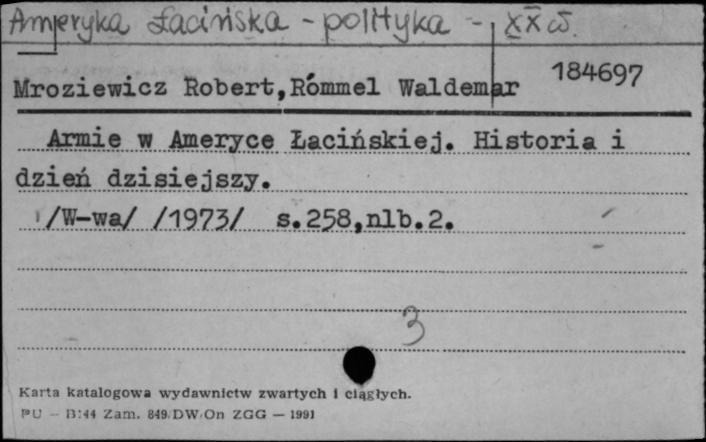 Ameryka Łacińska - polityka - XX w.
184697
Mroziewicz Robert,Rómmel Waldemar
Armie w Ameryce Łacińskiej. Historia i
dzień dzisiejszy.
/W-wa/ /1973/ s.258,nlb.2.
3
Karta katalogowa wydawnictw zwartych i ciągłych.
PU – B/44 Zam. 849/DW/On ZGG — 1991